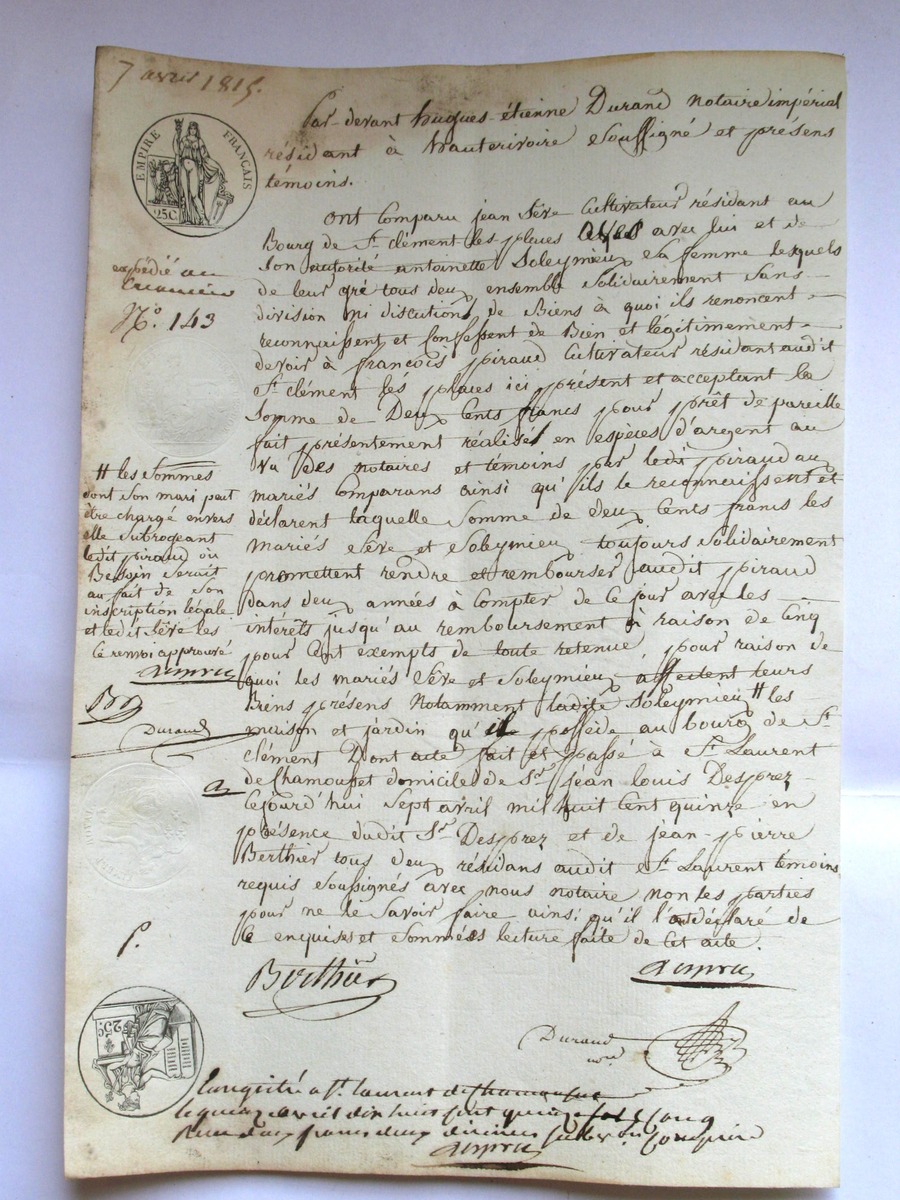 7 avril 1815.
EMPIRE FRANÇAIS
25C
Par-devant hugues-étienne Durand notaire impérial
résidant à hauterivoire soussigné et présens
témoins.
ont comparu jean Sève Cultivateur résidant au
Bourg de St. clément les places avec lui et de
son autorité antoinette Soleymieux sa femme lesquels
de leur gré tous deux ensemble solidairement sans
division ni discution de Biens à quoi ils renoncent
reconnaissent et Confessent de Bien et légitimement
devoir à françois piraud Cultivateur résidant audit
St. clément les places ici présent et acceptant la
Somme de Deux Cents francs pour prêt de pareille
fait présentement réalisé en espèces d'argent au
vu des notaires et témoins par ledit piraud au
mariés Comparans ainsi qu'ils le reconnaissent et
déclarent laquelle Somme de deux Cents francs les
mariés Sève et Soleymieux toujours solidairement
promettent rendre et rembourser audit piraud
dans deux années à Compter de Ce jour avec les
intérêts jusqu'au remboursement à raison de Cinq
pour Cent exempts de toute retenue, pour raison de
quoi les mariés Sève et Soleymieux affectent leurs
Biens présens Notamment ladite Soleymieux # les
maison et jardin qu'il possède au bourg de St.
Clément Dont acte fait et passé à St. Laurent
de Chamousset domicile de Sr. jean louis Desprez
Cejourd'hui Sept avril mil huit Cent quinze en
présence dudit Sr. Desprez et de jean-pierre
Berthier tous deux résidans audit St. Laurent témoins
requis soussignés avec nous notaire non les parties
pour ne le Savoir faire ainsi qu'il l'ont déclaré de
Ce enquises et sommées lecture faite de Cet acte.
expédié au
No. 143
# les Sommes
dont son mari peut
être chargé envers
elle Subrogeant
ledit piraud où
Besoin serait
au fait de son
inscription légale
et ledit Sève les
Ce renvoi approuvé
Durand
Berthier
Durand
nore.
25C.
Enregistré à St. laurent de Chamousset
le quinze avril dix huit cent quinze
deux francs deux décimes Compris